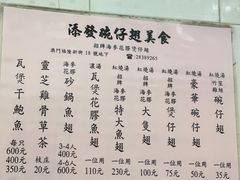 添發碗仔翅美食
招牌海參花膠煲仔翅
澳門福隆新街18號地下 ☎:28389265
瓦煲干鮑魚 每只 600元 400元 350元
靈芝雞骨草茶 每支 400元 枝庄 20元
海參花膠砂鍋魚翅 3-4人 400元 4-6人 600元
濃湯瓦煲花膠魚翅 一位用 110元
紅燒湯招牌海參花膠翅 一位用 230元
紅燒湯招牌特大隻翅 一位用 100元
紅燒湯豪華碗仔翅 一位用 75元
紅燒湯竹笙雞絲碗仔翅 一位用 50元